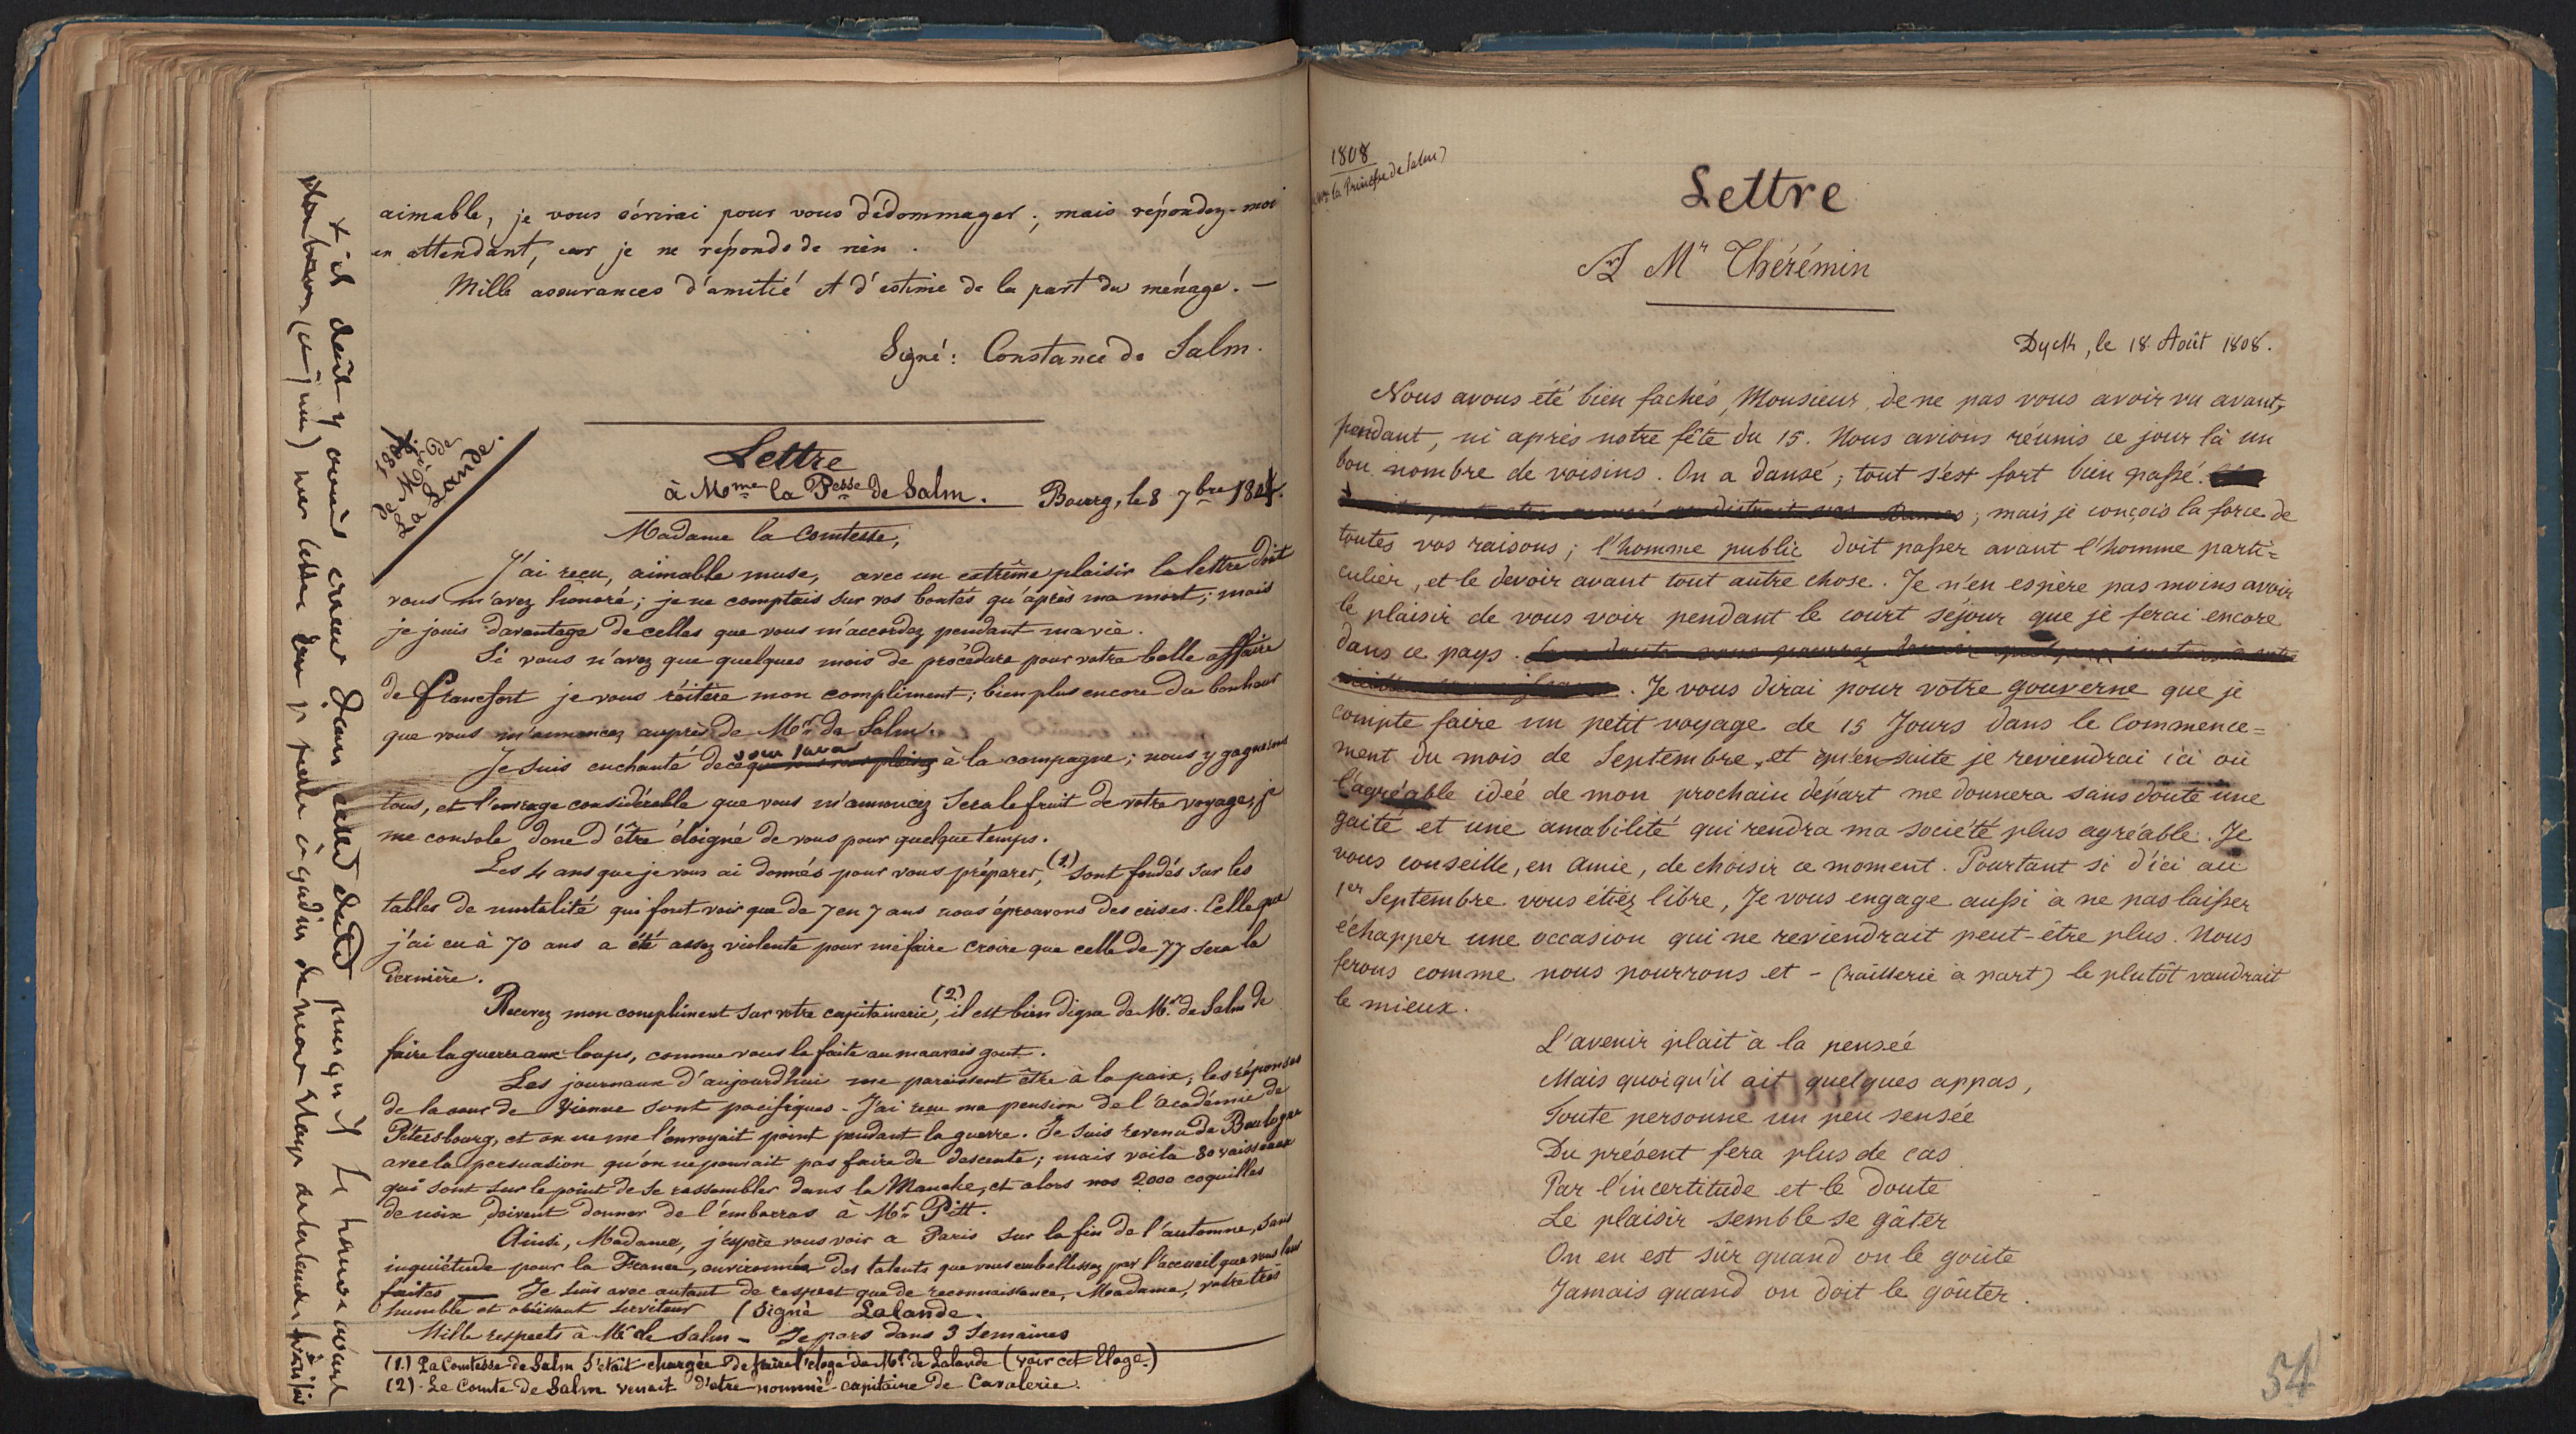 aimable, je vous écrirai pour vous dédommager; mais répondez-moi
en attendant, car je ne réponds de rien.
Mille assurances d'amitié et d'estime de la part du ménage. —
Signé: Constance de Salm.
de Mr de
La Lande.
Lettre
à Mme la Pesse de Salm.
Bourg, le 8 7bre 180
Madame la Comtesse,
J'ai reçu, aimable muse, avec un extrême plaisir la lettre dont
vous m'avez honoré; je ne comptais sur vos bontés qu'après ma mort; mais
je jouis davantage de celles que vous m'accordez pendant ma vie.
Si vous n'avez que quelques mois de procédure pour votre belle affaire
de Francfort je vous réitère mon compliment; bien plus encore du bonheur
que vous m'annoncez auprès de Mr de Salm.
Je suis enchanté de ce que vous à la campagne; nous y gagnerons
tous, et l'ouvrage considérable que vous m'annoncez sera le fruit de votre voyage, je
me console donc d'être éloigné de vous pour quelque temps.
Les 4 ans que je vous ai donnés pour vous préparer, (1) sont fondés sur les
tables de mortalité qui font voir que de 7 en 7 ans nous éprouvons des crises. Celle que
j'ai eu à 70 ans a été assez violente pour me faire croire que celle de 77 sera la
dernière.
Recevez mon compliment sur votre capitainerie, (2) il est bien digne de Mr de Salm de
faire la guerre aux loups, comme vous la faite au mauvais gout.
Les journaux d'aujourd'hui me paraissent être à la paix; les réponses
de la cour de Vienne sont pacifiques. J'ai reçu ma pension de l'académie de
Pétersbourg, et on ne me l'envoyait point pendant la guerre. Je suis revenu de Boulogne
avec la persuation qu'on ne pouvait pas faire de descente; mais voila 80 vaisseaux
qui sont sur le point de se rassembler dans la Manche, et alors nos 2000 coquilles
de noix doivent donner de l'embarras à Mr Pitt.
Ainsi, Madame, j'espère vous voir a Paris sur la fin de l'automne, sans
inquiétude pour la France, environnée des talents que vous embellissez par l'accueil que vous leur
faites — Je suis avec autant de respect que de reconnaissance, Madame, votre très
humble et obéissant serviteur (Signé Lalande.
Mille respects à Mr de Salm — Je pars dans 3 semaines
(1.) La Comtesse de Salm s'était chargée de faire l'éloge de Mr de Lalande (voir cet Eloge.)
(2). Le Comte de Salm venait d'etre nommé capitaine de Cavalerie.
1808
la Princesse de Salm)
Lettre
A Mr Thérémin
Dyck, le 18 Août 1808.
Nous avons été bien fachés, Monsieur, de ne pas vous avoir vu avant,
pendant, ni après notre fête du 15. Nous avions réunis ce jour là un
bon nombre de voisins. On a dansé; tout s'est fort bien passé.
; mais je conçois la force de
toutes vos raisons; l'homme public doit passer avant l'homme parti=
culier, et le devoir avant tout autre chose. Je n'en espère pas moins avoir
le plaisir de vous voir pendant le court séjour que je ferai encore
dans ce pays.
. Je vous dirai pour votre gouverne que je
compte faire un petit voyage de 15 Jours dans le Commence=
ment du mois de Septembre, et qu'en-suite je reviendrai ici où
l'agréable idée de mon prochain départ me donnera sans doute une
gaité et une amabilité qui rendra ma société plus agréable. Je
vous conseille, en amie, de choisir ce moment. Pourtant si d'ici au
1er Septembre vous étiez libre, Je vous engage aussi à ne pas laisser
échapper une occasion qui ne reviendrait peut-être plus. Nous
ferons comme nous pourrons et - (raillerie à part) le plutôt vaudrait
le mieux.
L'avenir plait à la pensée
Mais quoiqu'il ait quelques appas,
Toute personne un peu sensée
Du présent fera plus de cas
Par l'incertitude et le doute
Le plaisir semble se gâter
On en est sûr quand on le goûte
Jamais quand on doit le goûter.
54